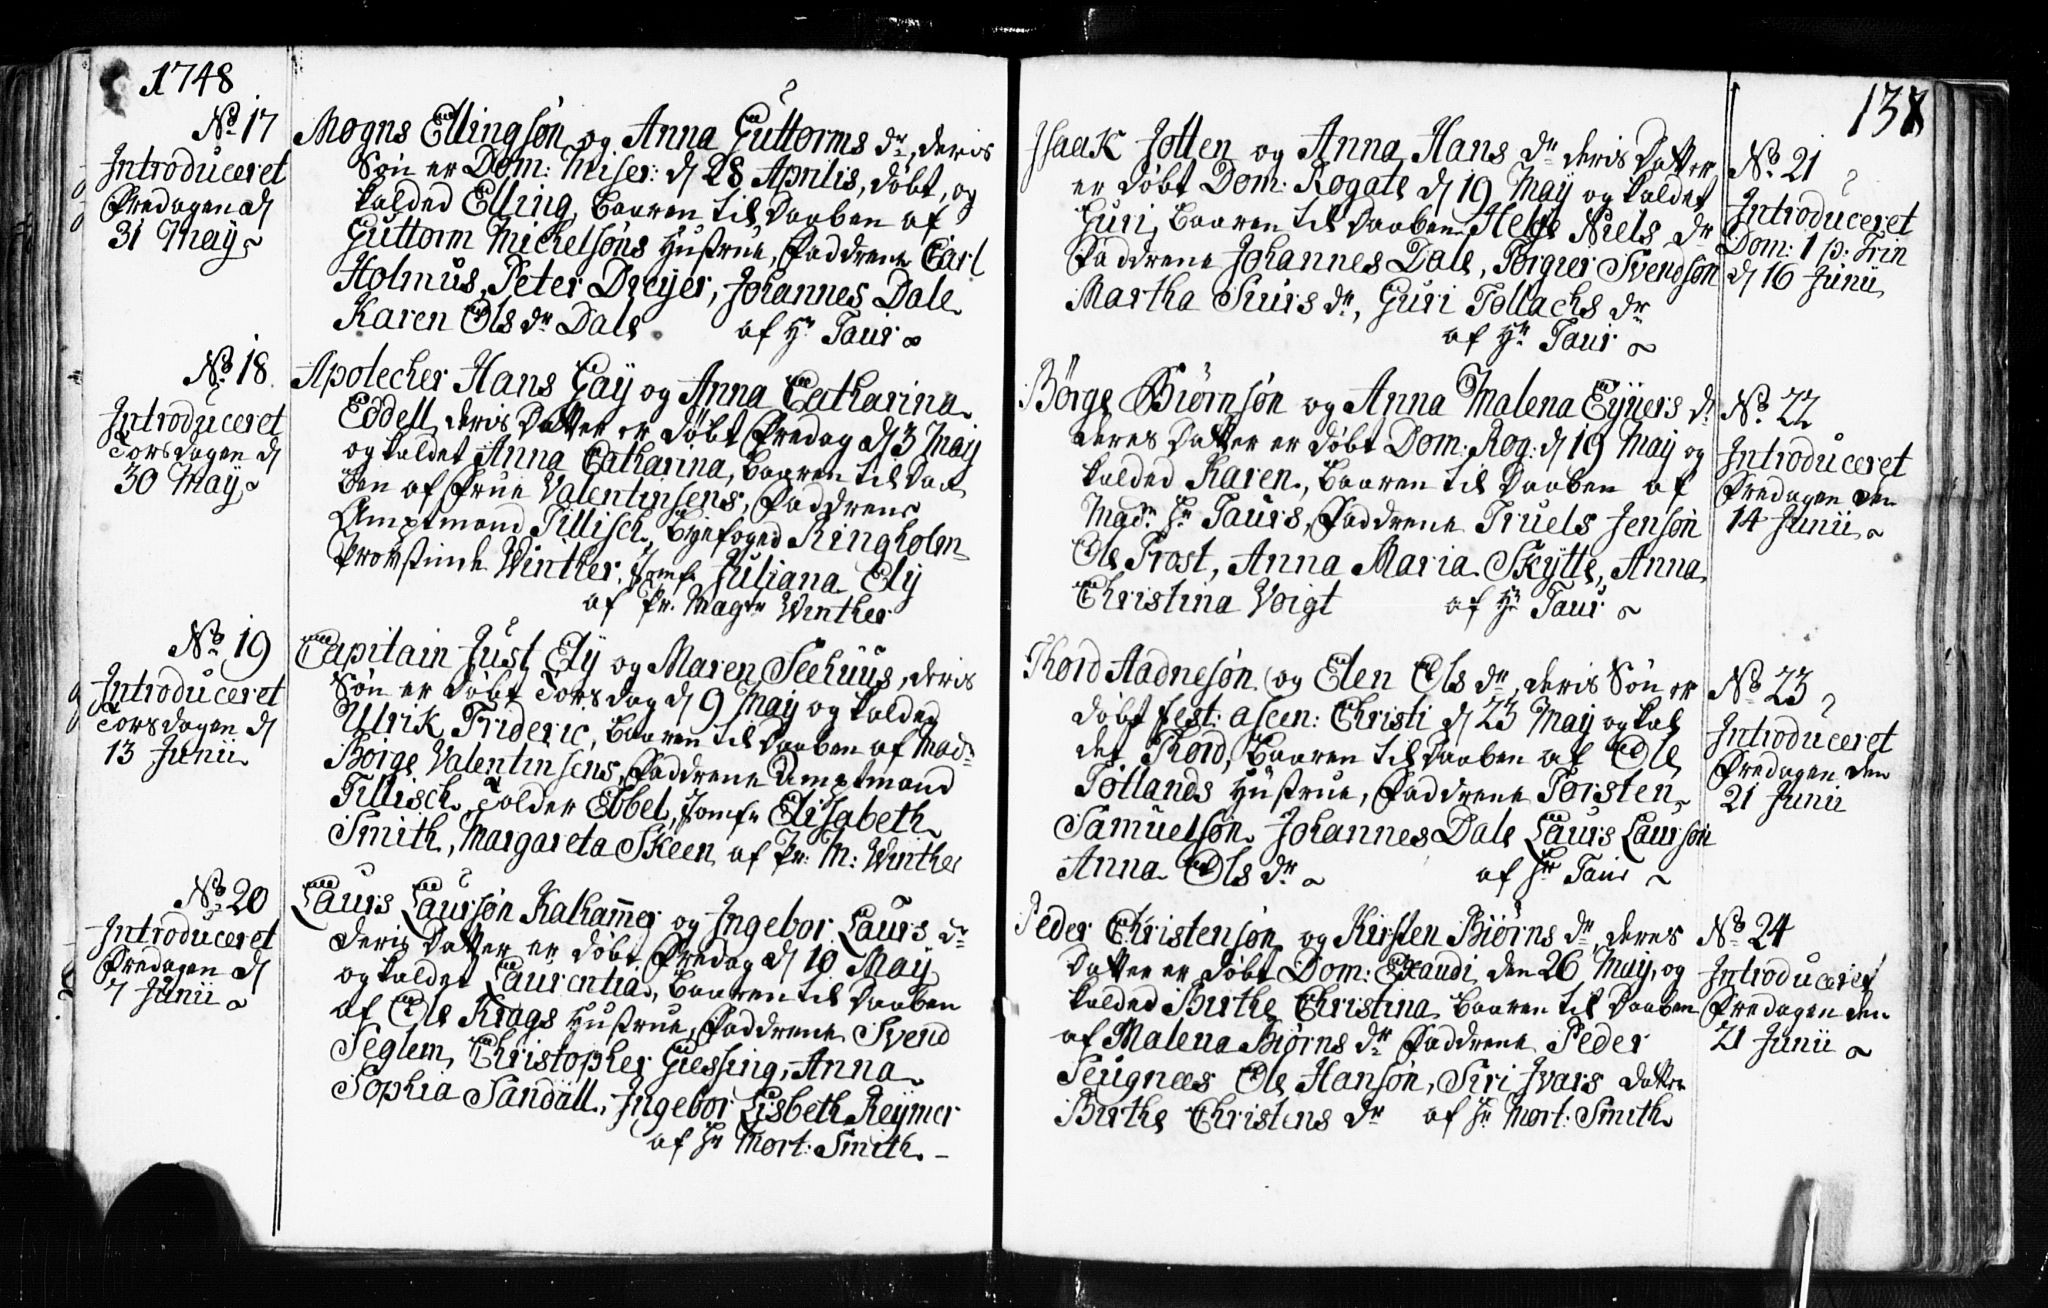 1748
No 17
Introduceret
Fredagen d
31 Maÿ
Mogns Ellingsøn og Anna Guttorms dr, deris
Søn er Dom: Miser: d 28 Aprilis, døbt, og
kalded Elling, baaren til Daaben af
Guttorm Michelsøns Hustrue, Faddrene Carl
Holmus, Peter Dreyer, Johannes Dale
Karen Ols dr Dale af Hr Taur
No 18
Introduceret
Torsdagen d
30 Maÿ
Apotecher Hans Gaÿ og Anna Catharina
Eddell, deris Datter er døbt Fredag d 3 Maÿ
og kaldet Anna Catharina, baaren til Daa
ben af Frue Valentinsens, Faddrene
Amptmand Tillisch, Byefoged Ringholm
Provstinde Winther, Jomfr Juliana Elÿ
af Pr. Magr Winther
No 19
Introduceret
Torsdagen d
13 Junii
Capitain Just Elÿ og Maren Seehuus, deris
Søn er døbt Torsdag d 9 Maÿ og kalded
Ulrik Frideric, baaren til Daaben af Mad
Børge Valentinsens, Faddrene Amptmand
Tillisch, Tolder Ebbel, Jomfr Elisabeth
Smith, Margareta Skeen af Pr: M: Winther
No 20
Introduceret
Fredagen d
7 Junii
Laurs Laursøn Kakammer og Ingebor Laurs dr
deris Datter er døbt Fredag d 10 Maÿ
og kaldet Laurentia, baaren til Daaben
af Ole Krags Hustrue, Faddrene Svend
Seglem, Christopher Giessing, Anna
Sophia Sandäll, Ingebor Lisbeth Reÿmer
af Hr Mort: Smith
137
Isaak Jotten og Anna Hans dr deris Datter
er døbt Dom: Rogate d 19 Maÿ og kaldet
Guri, baaren til Daaben Helge Niels dr
Faddrene Johannes Dale, Torgier Svendsøn
Martha Siurs dr, Guri Tollachs dr
af Hr Taur
No 21
Introduceret
Dom: 1 p: Trin
d 16 Junii
Börge Biørnsøn og Anna Malena Eÿvers dr
deres Datter er døbt Dom: Rog: d 19 Maÿ og
kalded Karen, baaren til Daaben af
Madm Hr Taurs, Faddrene Truels Jensøn
Ole Frost, Anna Maria Skÿtte, Anna
Christina Voigt af Hr Taur
No 22
Introduceret
Fredagen den
14 Junii
Thord Aadnesøn og Elen Ols dr, deris Søn er
døbt fest: ascen: Christi d 23 Maÿ og kal
det Thord, baaren til Daaben af Ole
Tøllands Hustrue, Faddrene Torsten
Samuelsøn Johannes Dale Laurs Laursøn
Anna Ols dr af Hr Taur
No 23
Introduceret
Fredagen den
21 Junii
Peder Christensøn og Kirsten Biørns dr, deres
Datter er døbt Dom: Exaudi den 26 Maÿ, og
kalded Birthe Christina baaren til Daaben
af Malena Biørns dr Faddrene Peder
Seugnees Ole Hansøn, Siri Ivars datter
Birthe Christens dr af Hr Mort: Smith
No 24
Introduceret
Fredagen den
21 Junii